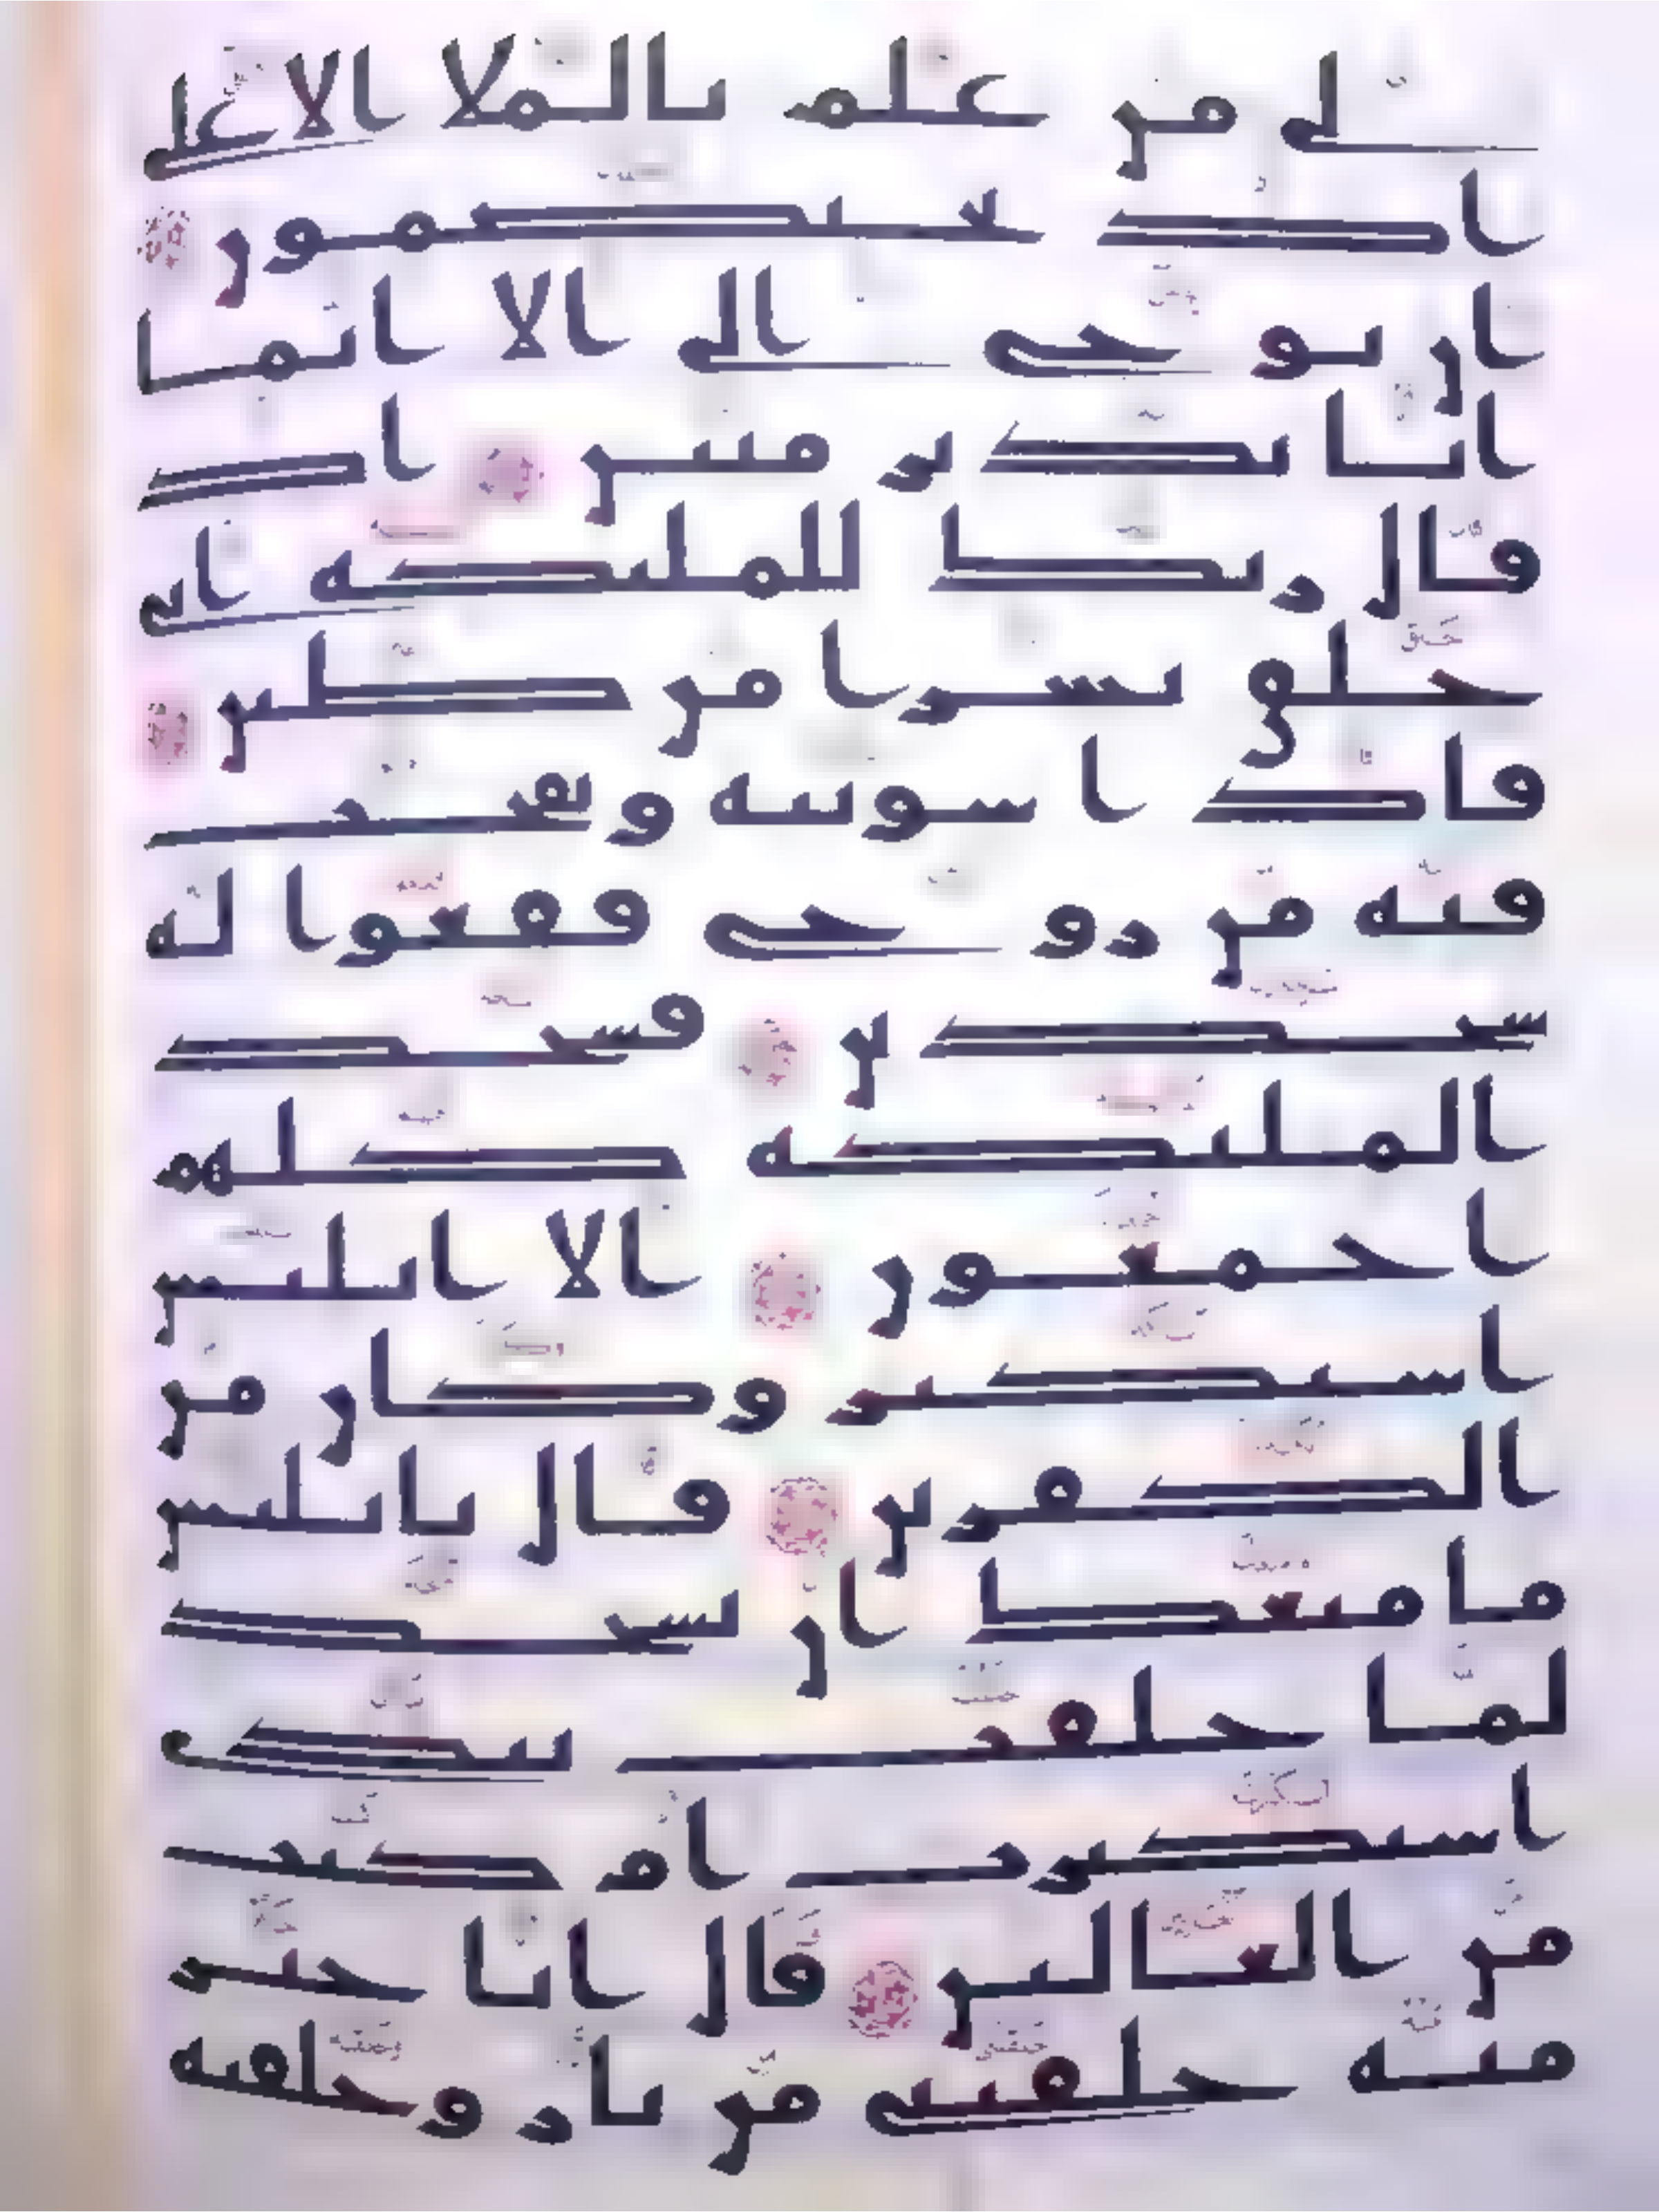 لى من علم بالملا الاعلى
اذ يختصمون
ان يوحى الى الا انما
انا نذير مبين اذ
قال ربك للمليكه انى
خلق بشرا من طين
فاذا سويته ونفخت
فيه من روحى فقعوا له
سجدين فسجد
المليكه كلهم
اجمعون الا ابليس
استكبر وكان من
الكفرين قال يابليس
ما منعك ان تسجد
لما خلقت بيدى
استكبرت ام كنت
من العالين قال انا خير
منه خلقتنى من نار وخلقته